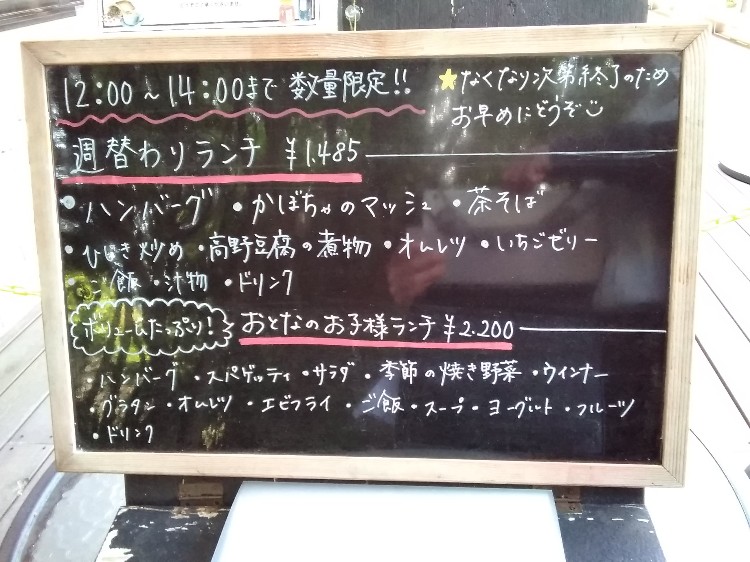 12:00～14:00まで 数量限定!!
★なくなり次第終了のため
お早めにどうぞ
週替わりランチ ¥1.485
・ハンバーグ ・かぼちゃのマッシュ ・茶そば
・ひじき炒め ・高野豆腐の煮物 ・オムレツ ・いちごゼリー
・ご飯 ・汁物 ・ドリンク
ボリュームたっぷり! おとなのお子様ランチ ¥2.200
・ハンバーグ ・スパゲッティ ・サラダ ・季節の焼き野菜 ・ウインナー
・グラタン ・オムレツ ・エビフライ ・ご飯 ・スープ ・ヨーグルト ・フルーツ
・ドリンク